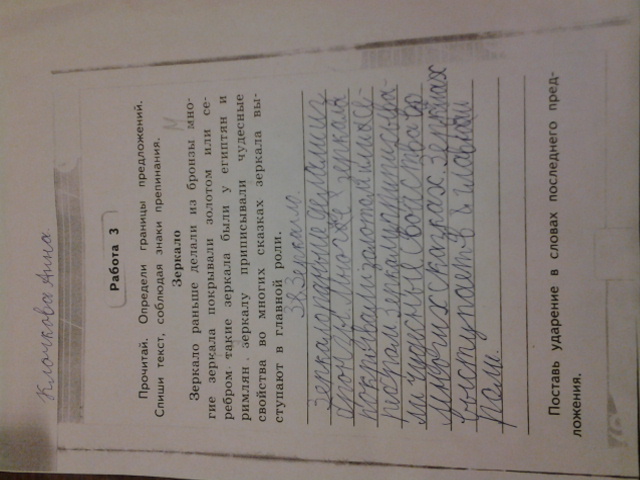 Клочкова Анна
Работа 3
Прочитай. Определи границы предложений.
Спиши текст, соблюдая знаки препинания.
Зеркало
Зеркало раньше делали из бронзы мно-
гие зеркала покрывали золотом или се-
ребром. такие зеркала были у египтян и
римлян. зеркалу приписывали чудесные
свойства во многих сказках зеркала вы-
ступают в главной роли.
Зеркало
Зеркало раньше делали из
бронзы. Многие зеркала
покрывали золотом или се-
ребром зеркалу приписыва-
ли чудесные свойства во
многих сказках зеркала
выступает в главной
роли.
Поставь ударение в словах последнего пред-
ложения.